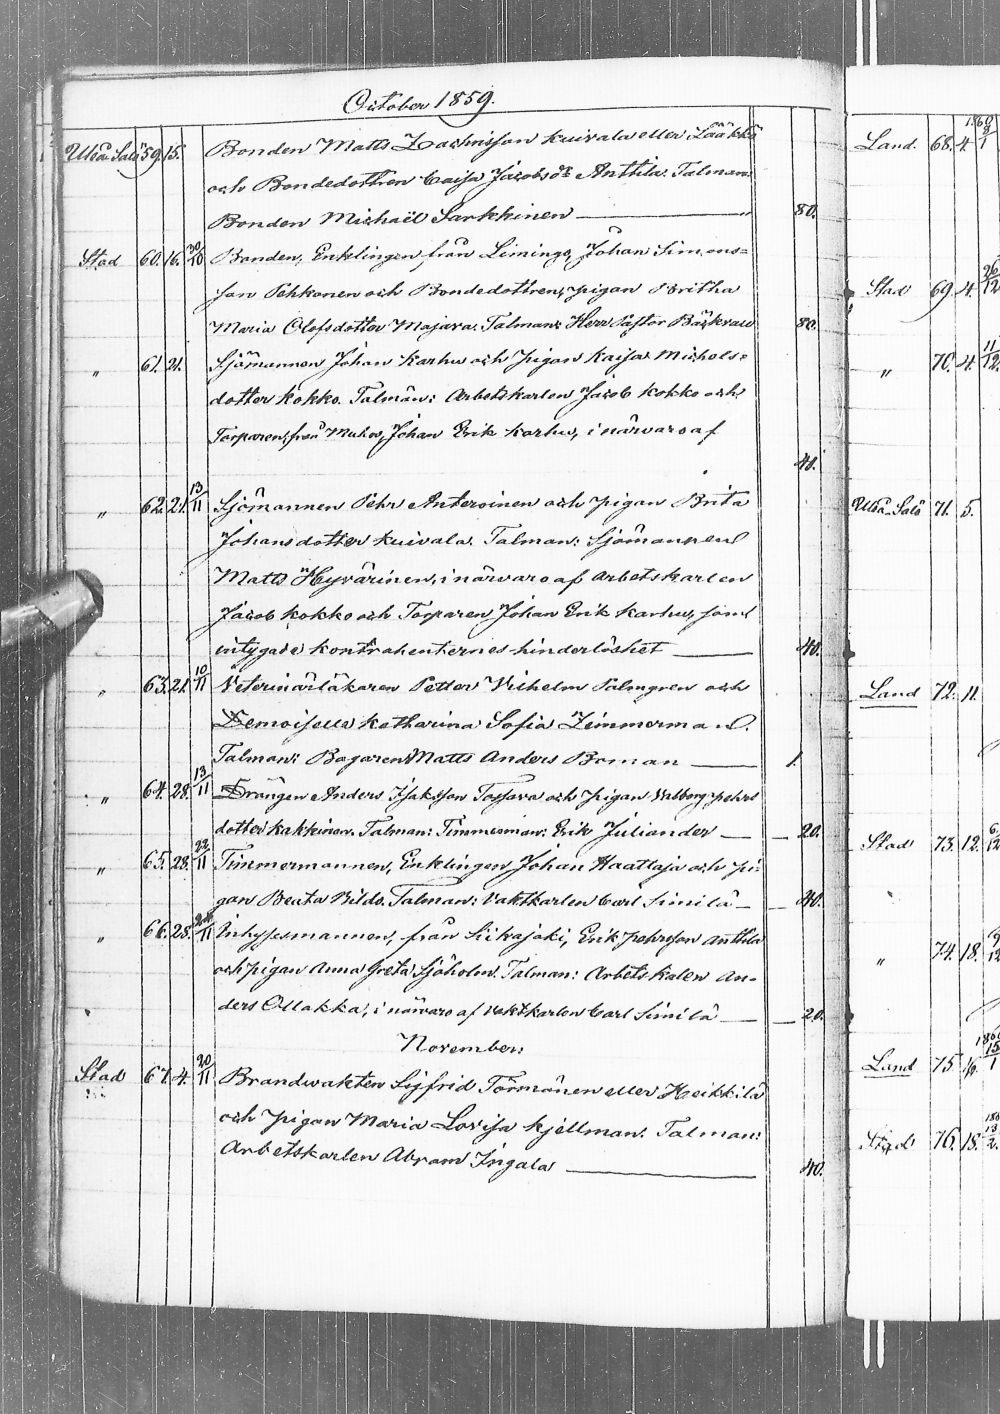 October 1859.
Uleå Salo 59. 15. Bonden Matts Zachrisson Kuivala eller Lääkkö
och Bondedottren Caisa Jacobsdr Anthila. Talman:
Bonden Michaël Sarkkinen — " 80.
Stad 60. 16. 30/10 Bonden, Enklingen, från Limingo, Johan Simons=
son Pehkonen och Bondedottren, pigan Britha
Maria Olofsdotter Majava. Talman: Herr Pastor Bäckman 80.
" 61. 21. Sjömannen Johan Karhu och Pigan Kaisa Michels=
dotter Kokko. Talmän: Arbetskarlen Jacob Kokko och
Torparen, från Muhos, Johan Erik Karhu, i närvaro af
40.
" 62. 21. 13/11 Sjömannen Pehr Anteroinen och pigan Brita
Johansdotter Kuivala. Talman: Sjömannen
Matts Hyvärinen, i närvaro af Arbetskarlen
Jacob Kokko och Torparen Johan Erik Karhu, som
intygade kontrahenternes hinderlöshet — 40.
" 63. 21. 10/11 Veterinärläkaren Petter Vilhelm Palmgren och
Demoiselle Katharina Sofia Zimmerman.
Talman: Bagaren Matts Anders Boman — 1.
" 64. 28. 13/11 Drängen Anders Isaksson Tossava och pigan Valborg Pehrs
dotter Kakkinen. Talman: Timmerman: Erik Juliander — 20.
" 65. 28. 22/11 Timmermannen, Enklingen Johan Haattaja och pi=
gan Beata Vilds. Talman: Vaktkarlen Carl Similä — 40.
" 66. 28. /11 Inhysesmannen, från Siikajoki, Erik Pehrsson Anthila
och pigan Anna Greta Sjöholm. Talman: Arbetskalen An=
ders Ollakka, i närvaro af Vaktkarlen Carl Similä — 20.
November:
Stad 67. 4. 20/11 Brandwakten Sigfrid Törmänen eller Heikkilä
och Pigan Maria Lovisa Kjellman. Talman:
Arbetskarlen Abram Ingala — 40.
Land. 68. 4. 1860 /1
Stad 69. 4. 26/12
" 70. 4. 11/12
Uleå Salo 71. 5.
Land 72. 11.
Stad 73. 12. /12
" 74. 18. /12
Land 75. 16. 15/1
Stad 76. 18. 13/2